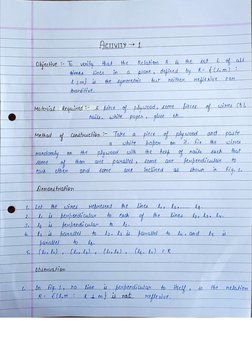 ACTIVITY → 1
Objective :- To verify that the Relation R in the set L of all
lines in a plane, defined by R = {(l,m) :
l ⊥ m} is the symmetric but neither reflexive nor
transitive.
Material Required :- A piece of plywood, some pieces of wires (8),
nails, white paper, glue etc.
Method of Construction :- Take a piece of plywood and paste
a white paper on it. Fix the wires
randomly on the plywood with the help of nails such that
some of them are parallel, some are perpendicular to
each other and some are inclined as shown in Fig. 1.
Demonstration
1. Let the wires represent the lines l₁, l₂, ... l₈.
2. l₁ is perpendicular to each of the lines l₂, l₃, l₄.
3. l₆ is perpendicular to l₇.
4. l₂ is parallel to l₃, l₃ is parallel to l₄ and l₅ is
parallel to l₈.
5. (l₁, l₂), (l₁, l₃), (l₁, l₄), (l₆, l₇) ∈ R
Observation
1. In Fig. 1, no line is perpendicular to itself, so the relation
R = {(l,m) : l ⊥ m} is not reflexive.